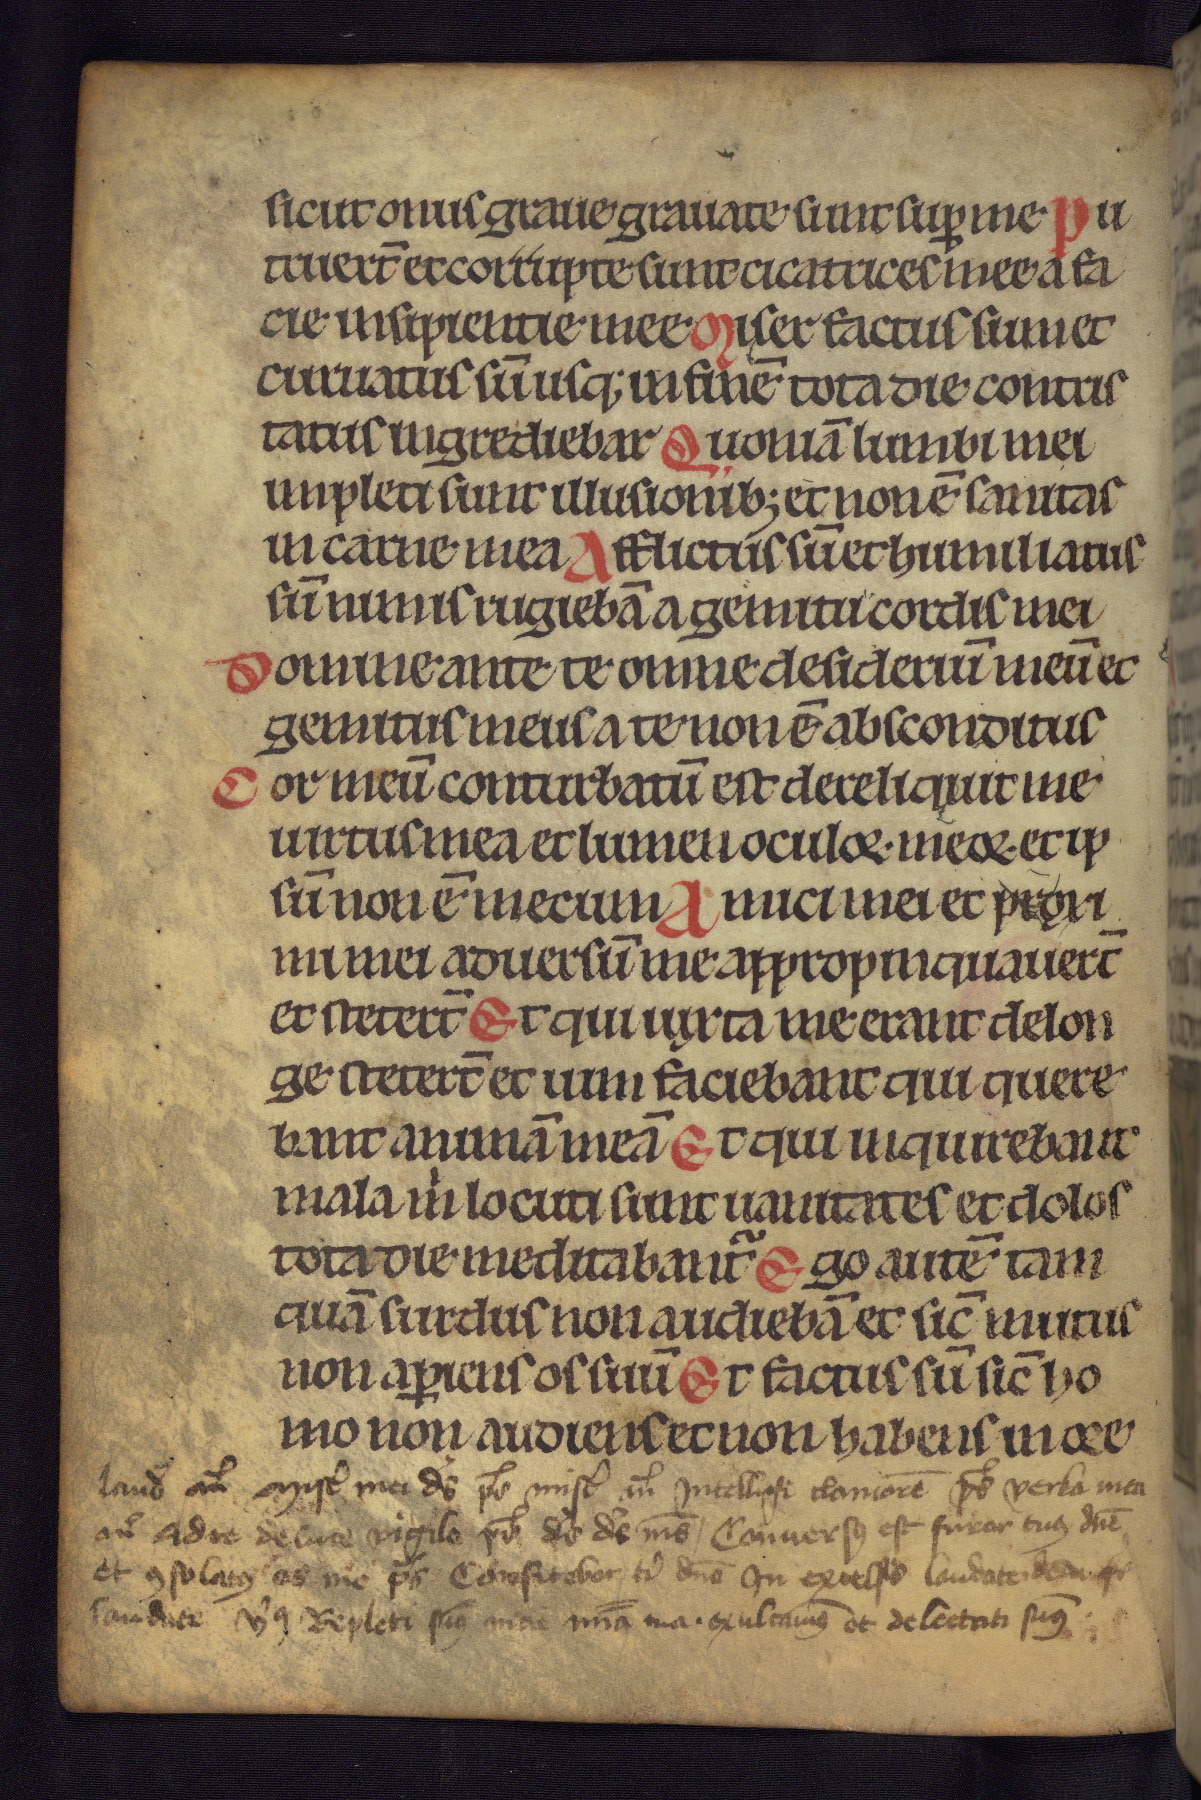 sicut onus graue grauate sunt sup̄ me Pu
truert̄ et corrupte sunt cicatrices mee a fa
cie insipientie mee Miser factus sum et
curuatus sū usq; in finē tota die contris
tatus ingrediebar Quoniā lumbi mei
impleti sunt illusionib; et non ē sanitas
in carne mea Afflictus sū et humiliatus
sū nimis rugiebā a gemitu cordis mei
Domine ante te omne desideriū meū et
gemitus meus a te non ē absconditus
Cor meū conturbatū est dereliquit me
uirtus mea et lumen oculoꝝ meoꝝ et ip
sū non ē mecum Amici mei et proxi
mi mei aduersū me appropinquauert̄
et stetert̄ Et qui iuxta me erant de lon
ge stetert̄ et uim faciebant qui quere
bant animā meā Et qui inquirebant
mala m̍ locuti sunt uanitates et dolos
tota die meditabant᷑ Ego autē tam
quā surdus non audiebā et sic̄ mutus
non ap̄iens os suū Et factus sū sic̄ ho
mo non audiens et non habens in ore
laud̄ an̄ mis̄ mei ds̄ ps̄ mis̄ an̄ Intellige clamorē ps̄ verba mea
an̄ Ad te de luce vigilo ps̄ ds̄ ds̄ ms̄ Conversꝯ est furor tuꝯ dn̄e
et ꝯsolatꝯ es me ps̄ Confitebor t̍ dn̄e In excelsis laudate
laudate Repleti suꝯ mane mīa tua exultauiꝯ et delectati suꝯ